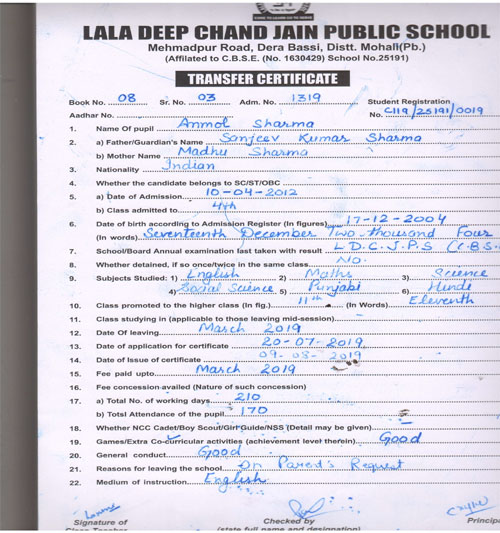 LALA DEEP CHAND JAIN PUBLIC SCHOOL
Mehmadpur Road, Dera Bassi, Distt. Mohali(Pb.)
(Affilated to C.B.S.E. (No. 1630429) School No.25191)
TRANSFER CERTIFICATE
Book No. 08 Sr. No. 03 Adm. No. 1319 Student Registration
Aadhar No. No. C119/25191/0019
1. Name Of pupil Anmol Sharma
2. a) Father/Guardian's Name Sanjeev Kumar Sharma
b) Mother Name Madhu Sharma
3. Nationality Indian
4. Whether the candidate belongs to SC/ST/OBC
5. a) Date of Admission 10-04-2012
b) Class admitted to 4th
6. Date of birth according to Admission Register (In figures) 17-12-2004
(In words) Seventeenth December Two thousand Four
7. School/Board Annual examination last taken with result L.D.C.J.P.S (C.B.S.
8. Whether detained, if so once/twice in the same class No.
9. Subjects Studied: 1) English 2) Maths 3) Science
4) Social Science 5) Punjabi 6) Hindi
10. Class promoted to the higher class (In fig.) 11th (In Words) Eleventh
11. Class studying in (applicable to those leaving mid-session)
12. Date Of leaving March 2019
13. Date of application for certificate 20-07-2019
14. Date of Issue of certificate 09-08-2019
15. Fee paid upto March 2019
16. Fee concession availed (Nature of such concession)
17. a) Total No. of working days 210
b) Total Attendance of the pupil 170
18. Whether NCC Cadet/Boy Scout/Girl Guide/NSS (Detail may be given)
19. Games/Extra Co-curricular activities (achievement level therein) Good
20. General conduct Good
21. Reasons for leaving the school On Parent's Request
22. Medium of instruction English
Signature of Checked by Princip
Class Teacher (state full name and designation)